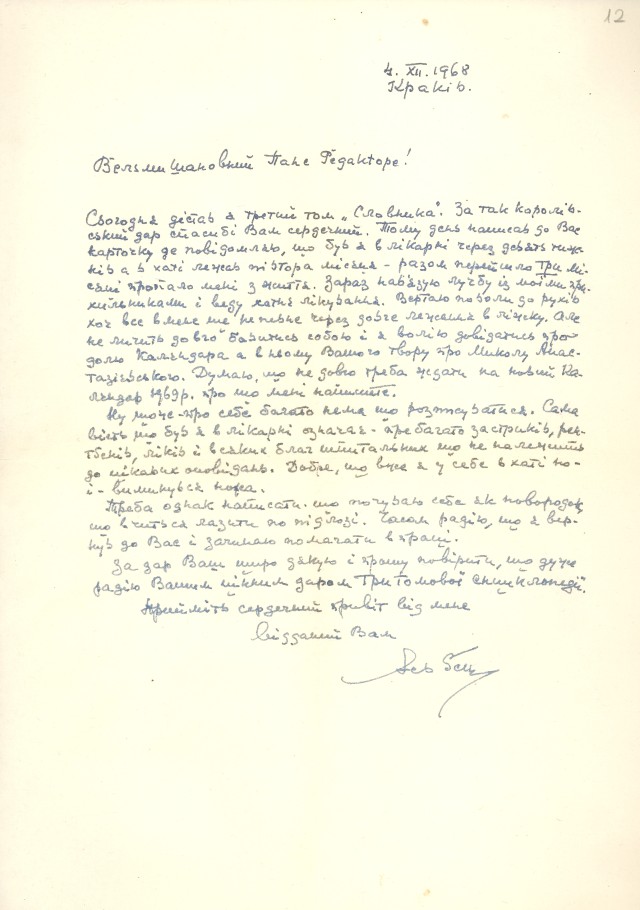 12
4. XII. 1968
Краків.
Вельмишановний Пане Редакторе!
Сьогодня дістав я третий том „Словника". За так королів-
ський дар спасибі Вам сердечний. Тому день написав до Вас
карточку де повідомляю, що був я в лікарні через девять тиж-
нів а в хаті лежав півтора місяця - разом перейшло Три мі-
сяці пропало мені з життя. Зараз навязую лучбу із моїми при-
хильниками і веду хатнє лікування. Вертаю поволи до рухів
хоч все в мене ще непевне через довге лежання в ліжку. Але
не личить довго бавитись собою і я волію довідатись про
долю Календара а в ньому Вашого твору про Миколу Анас-
тазієвського. Думаю, що не довго треба ждати на новий Ка-
лендар 1969р. про що мені напишете.
Ну може про себе багато нема що розписуватися. Сама
вість що був я в лікарні означає - пребагато застриків, рен-
тгенів, ліків і всяких благ шпитальних що не належить
до цікавих оповідань. Добре, що вже я у себе в хаті но-
і - виминувся ножа.
Треба однак написати що почуваю себе як новородок
що вчиться лазити по підлозі. Часом радію, що я вер-
нув до Вас і зачинаю помагати в праці.
За дар Ваш щиро дякую і прошу повірити, що дуже
радію Вашим цінним даром Три томової Енциклопедії.
Прийміть сердечний привіт від мене
відданий Вам